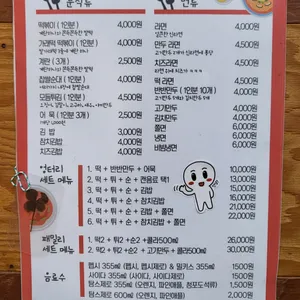 분식류
떡볶이 (1인분) 4,000원
가래떡 떡볶이 (1인분) 4,000원
계란 (3개) 2,500원
찹쌀순대 (1인분) 4,000원
모듬튀김 (1인분) 4,500원
어 묵 (1인분 3개) 2,500원
김 밥 3,000원
참치김밥 4,000원
치즈김밥 4,000원
면류
라면 4,000원
만두 라면 4,500원
치즈라면 4,500원
반반만두 (1인분 10개) 4,000원
고기만두 4,000원
김치만두 4,000원
쫄면 6,000원
냉면 6,000원
비빔냉면 6,000원
엉터리
세트 메뉴
1. 떡 + 반반만두 + 어묵 10,000원
2. 떡 + 튀 + 순 + 캔음료 택1 13,000원
3. 떡 + 튀 + 순 + 김밥 15,000원
4. 떡 + 튀 + 순 + 참치김밥 16,000원
5. 떡 + 튀 + 순 + 김밥 + 쫄면 21,000원
6. 떡 + 튀 + 순 + 참치김밥 + 쫄면 22,000원
패밀리
세트 메뉴
1. 떡2 + 튀2 +순2 + 콜라500ml 26,000원
2. 떡2 + 튀2 +순2 + 고기만두 + 콜라500ml 30,000원
음료수
펩시 355ml (펩시, 펩시제로) & 밀키스 355ml 1500원
사이다 355ml (사이다, 사이다제로) 1500원
탐스제로 355ml (오렌지, 파인애플, 청포도석류)